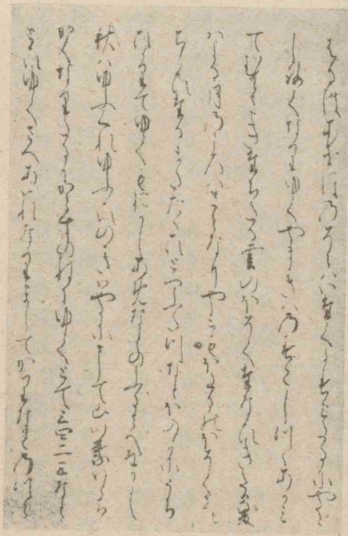 はるはあけほのそらはいたくかすみたるにやう
しろくなりゆくやまきはのすこしつゝあかみ
てむらさきたちたる雲のほそくたなひきたる夏
はよる月のころはさらなりやみもほたるのほそくとひ
ちかひたるまたたゝひとつふたつなとほのかにうち
ひかりてゆくもをかしあめなとのふるさへをかし
秋はゆふくれゆふひのきはやかにさして山の葉ちか
くなりたるにからすのねにゆくとて三四二三なと
とひゆくさへあはれなりましてかりなとの